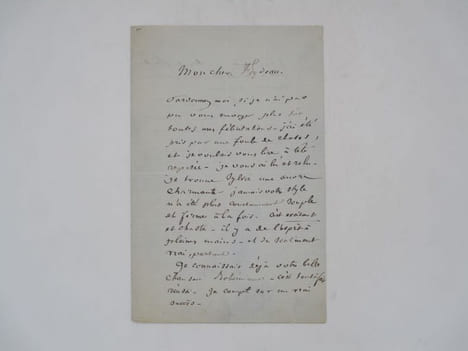 Mon cher Feydeau.
Pardonnez moi, si je n'ai pas
pu vous envoyer plus tôt
toutes mes félicitations - j'ai été
pris par une foule de choses,
et je voulais vous lire à tête
reposée - je vous ai lu et relu.
Je trouve Sylvie une œuvre
charmante - jamais votre style
n'a été plus constamment souple
et ferme à la fois. C'est
et chaste - il y a de l'esprit à
pleines mains - et du sentiment
vrai partout -
Je connaissais déjà votre belle
chanson - c'est
réussi - Je compte sur un vrai
succès -